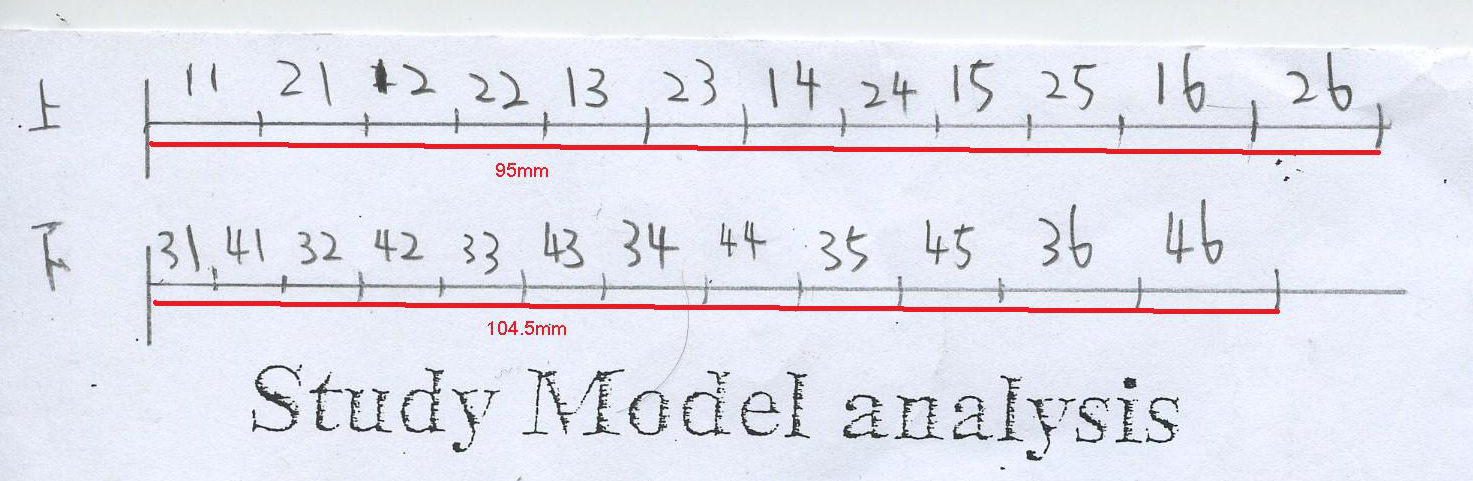 上 11 21 12 22 13 23 14 24 15 25 16 26
95mm
下 31 41 32 42 33 43 34 44 35 45 36 46
104.5mm
Study Model analysis